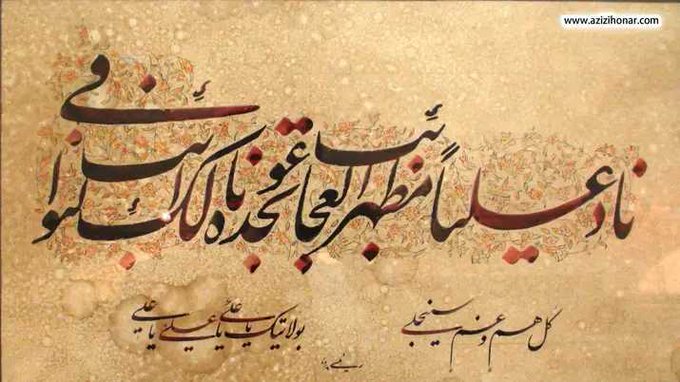 www.azizihonar.com
ناد علیاً مظهر العجائب تجده عوناً لک فی النوائب
کل هم و غم سینجلی
بولایتک یا علی یا علی یا علی